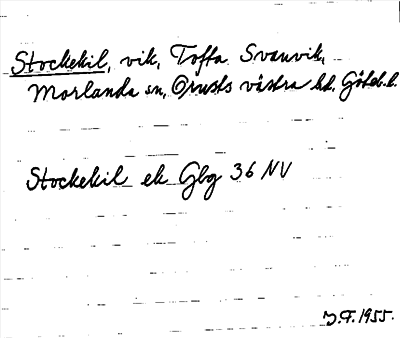 Stockekil, vik, Toffa Svanvik,
Morlanda sn, Orusts västra hd, Göteb. l.
Stockekil ek Gbg 36 NV
J.F. 1955.